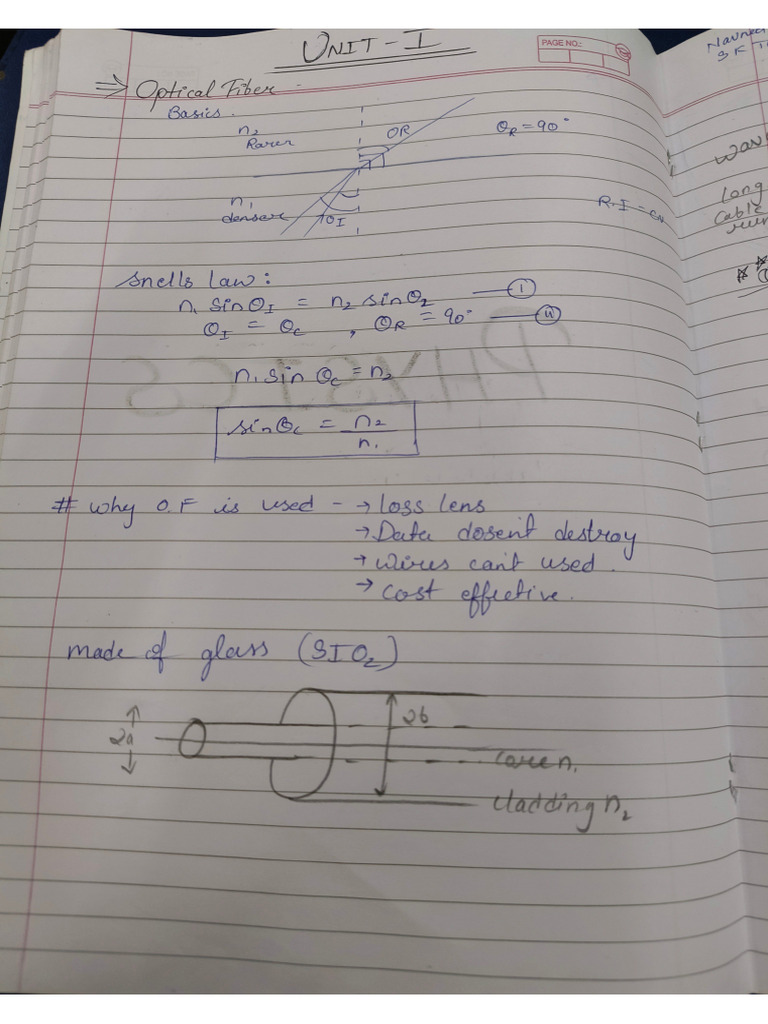 UNIT-I
PAGE NO.:
⇒ Optical Fiber
Basics.
n₂
Rarer
OR
θR = 90°
n₁
denser
θI
R.I =
Snells law:
n₁ sinθI = n₂ sinθ₂ — (I)
θI = θc , θR = 90° — (II)
n₁ sin θc = n₂
sinθc = n₂/n₁
# why O.F is used - → loss lens
→ Data dosent destroy
→ wires can't used.
→ cost effective.
made of glass (SIO₂)
2a
2b
core n₁
cladding n₂
PHYSICS
Long
Cable